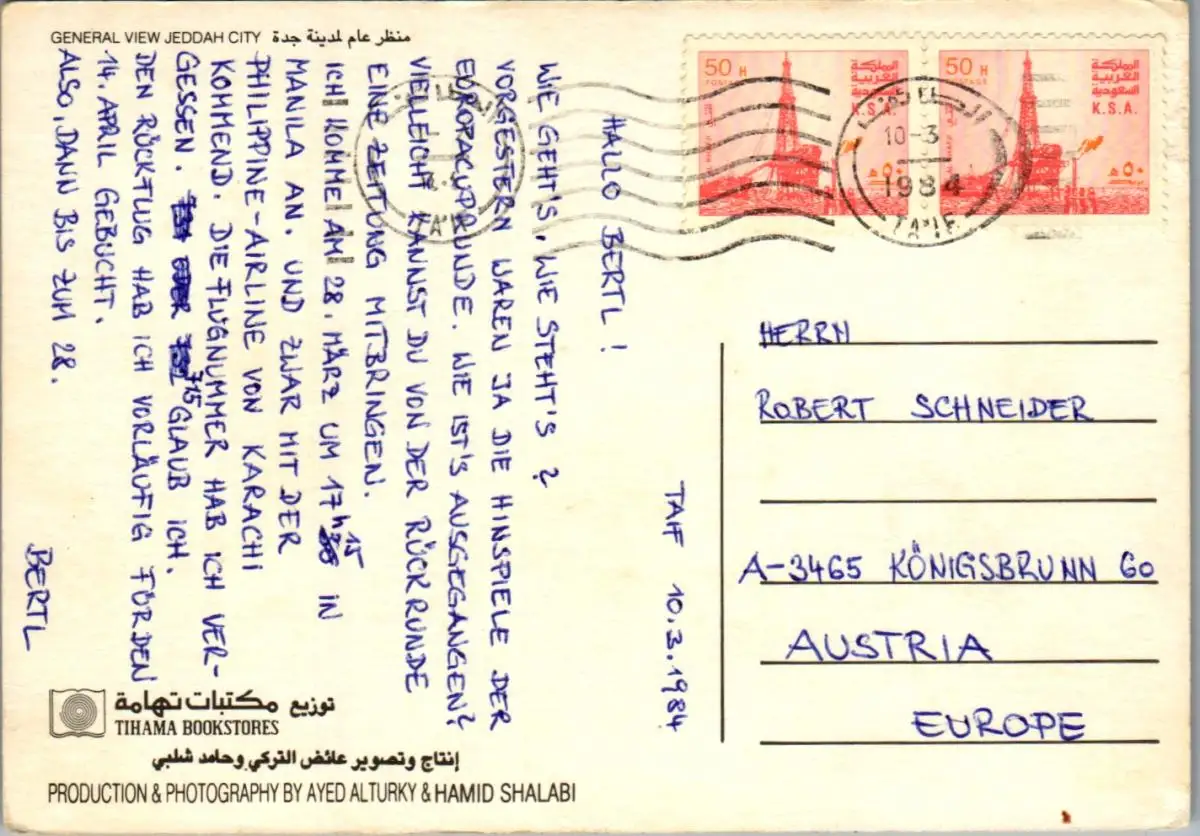 GENERAL VIEW JEDDAH CITY منظر عام لمدينة جدة
TAIF 10.3.1984
HALLO BERTL!
WIE GEHT'S, WIE STEHT'S?
VORGESTERN WAREN JA DIE HINSPIELE DER
EUROPACUPRUNDE. WIE IST'S AUSGEGANGEN?
VIELLEICHT KANNST DU VON DER RÜCKRUNDE
EINE ZEITUNG MITBRINGEN.
ICH KOMME AM 28. MÄRZ UM 17 h 15 IN
MANILA AN. UND ZWAR MIT DER
PHILIPPINE-AIRLINE VON KARACHI
KOMMEND. DIE FLUGNUMMER HAB ICH VER-
GESSEN. 715 GLAUB ICH.
DEN RÜCKFLUG HAB ICH VORLÄUFIG FÜR DEN
14. APRIL GEBUCHT.
ALSO, DANN BIS ZUM 28.
BERTL
توزيع مكتبات تهامة
TIHAMA BOOKSTORES
إنتاج وتصوير عائض التركي وحامد شلبي
PRODUCTION & PHOTOGRAPHY BY AYED ALTURKY & HAMID SHALABI
50 H
POSTAGE
المملكة
العربية
السعودية
K.S.A.
٥٠ هـ
50 H
POSTAGE
المملكة
العربية
السعودية
K.S.A.
٥٠ هـ
10-3
1984
TA'IF
HERRN
ROBERT SCHNEIDER
A-3465 KÖNIGSBRUNN 60
AUSTRIA
EUROPE